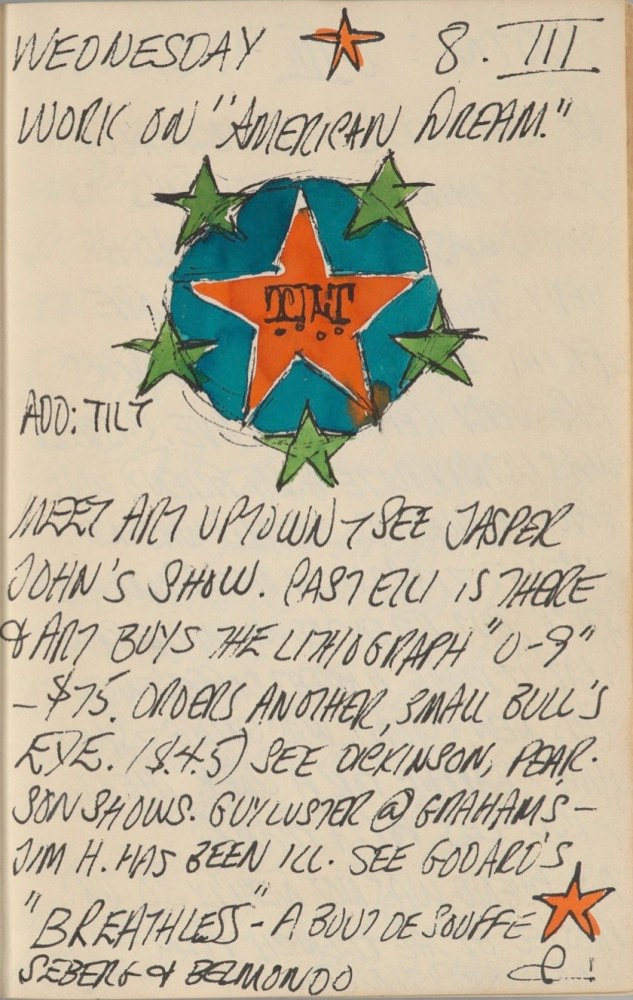 WEDNESDAY 8. III
WORK ON "AMERICAN DREAM."
TILT
ADD: TILT
MEET ART UPTOWN → SEE JASPER
JOHN'S SHOW. CASTELLI IS THERE
& ART BUYS THE LITHOGRAPH "0-9"
- $75. ORDERS ANOTHER, SMALL BULL'S
EYE. ($45) SEE DICKINSON, PEAR-
SON SHOWS. GUY LUSTER @ GRAHAM'S -
JIM H. HAS BEEN ILL. SEE GODARD'S
"BREATHLESS" - A BOUT DE SOUFFE
SEBERG & BELMONDO